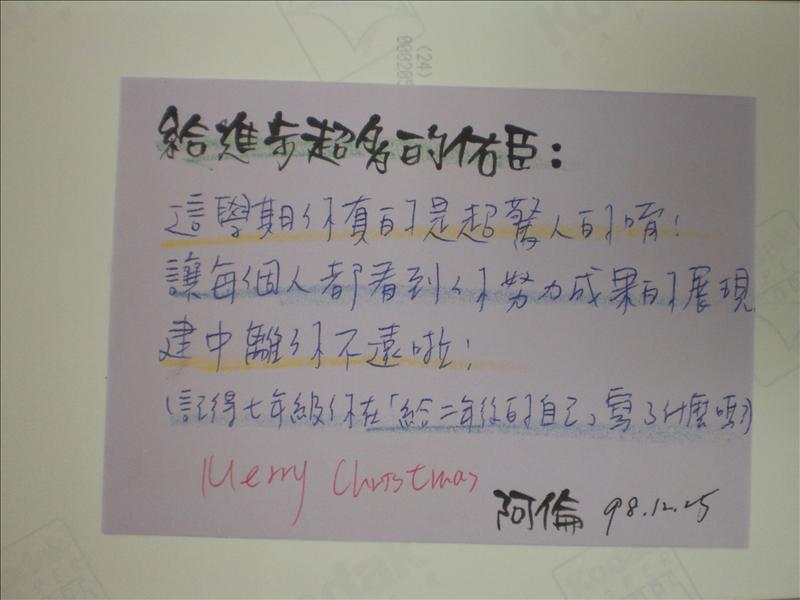 (24)
給進步超多的佑臣:
這學期你真的是超驚人的唷!
讓每個人都看到你努力成果的展現
建中離你不遠啦!
(記得七年級你在「給二年後的自己」寫了什麼嗎?)
Merry Christmas
阿倫 98.12.25
Kodak
Kodak
Kodak